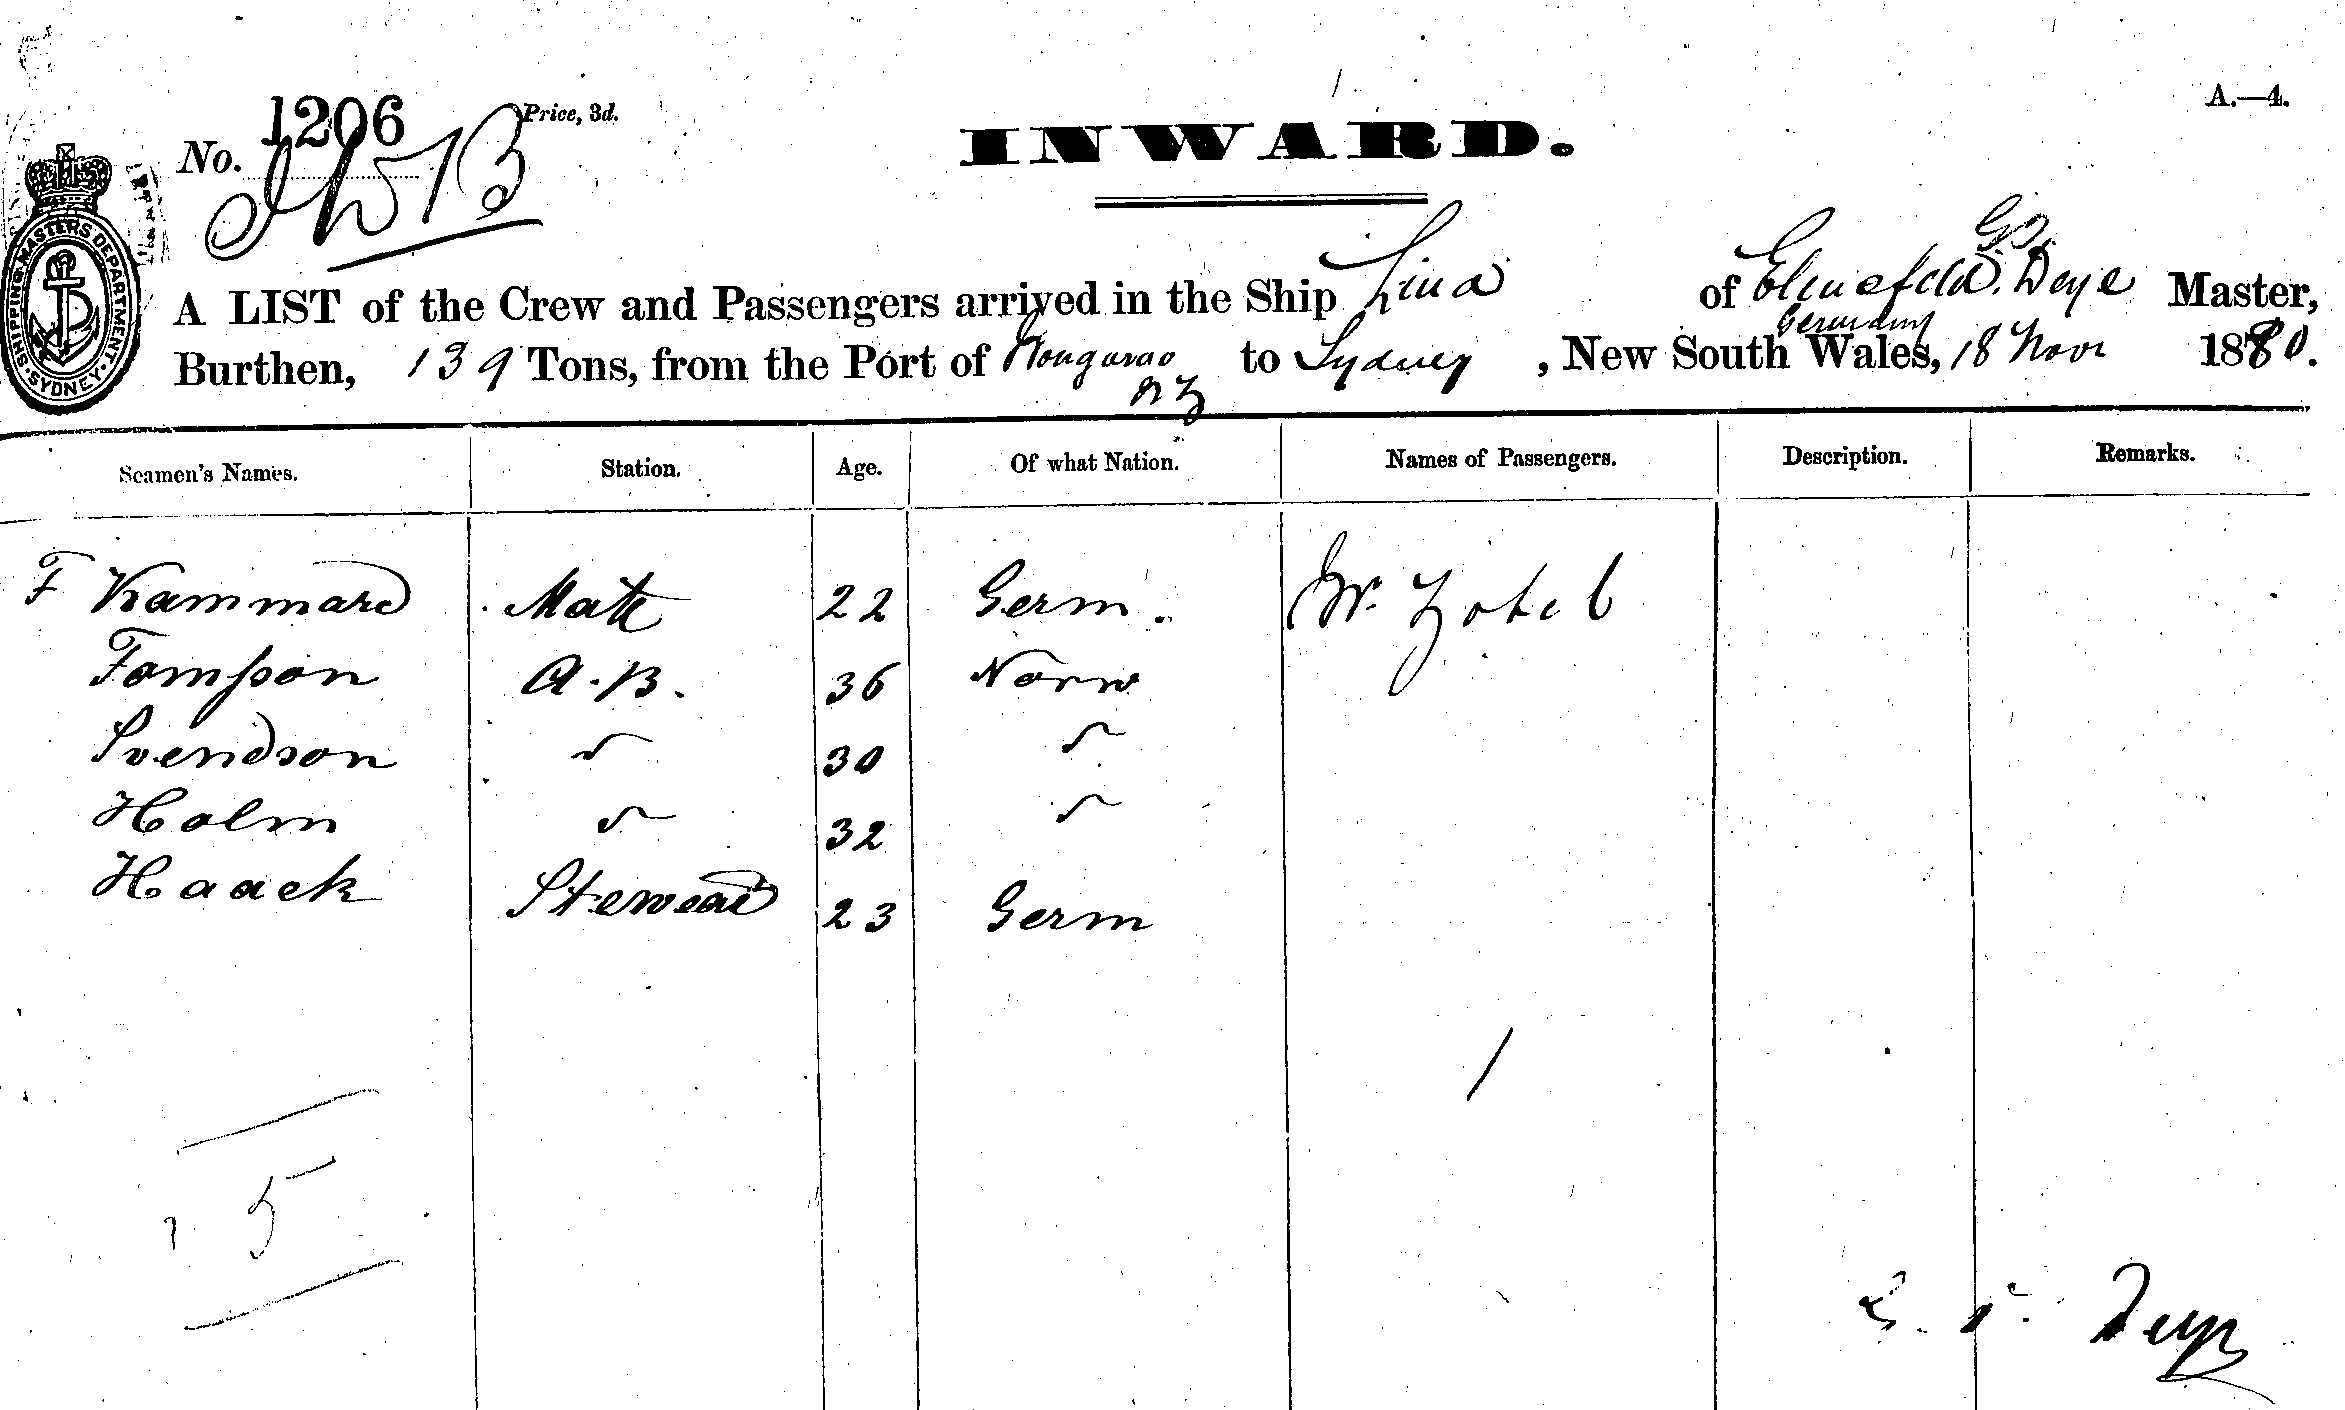 A.—4.
No. 1206 Price, 3d.
INWARD.
SHIPPING MASTERS DEPARTMENT
SYDNEY
A LIST of the Crew and Passengers arrived in the Ship Lina of Deye Master,
Germany
Burthen, 139 Tons, from the Port of to Sydney, New South Wales, 18 Novr 1880.
NZ
Seamen's Names. Station. Age. Of what Nation. Names of Passengers. Description. Remarks.
F Kammard Mate 22 Germ. Mr.
Tompson A.B. 36 Norw
Svendson 30
Holm 32
Haack Steward 23 Germ
1
5